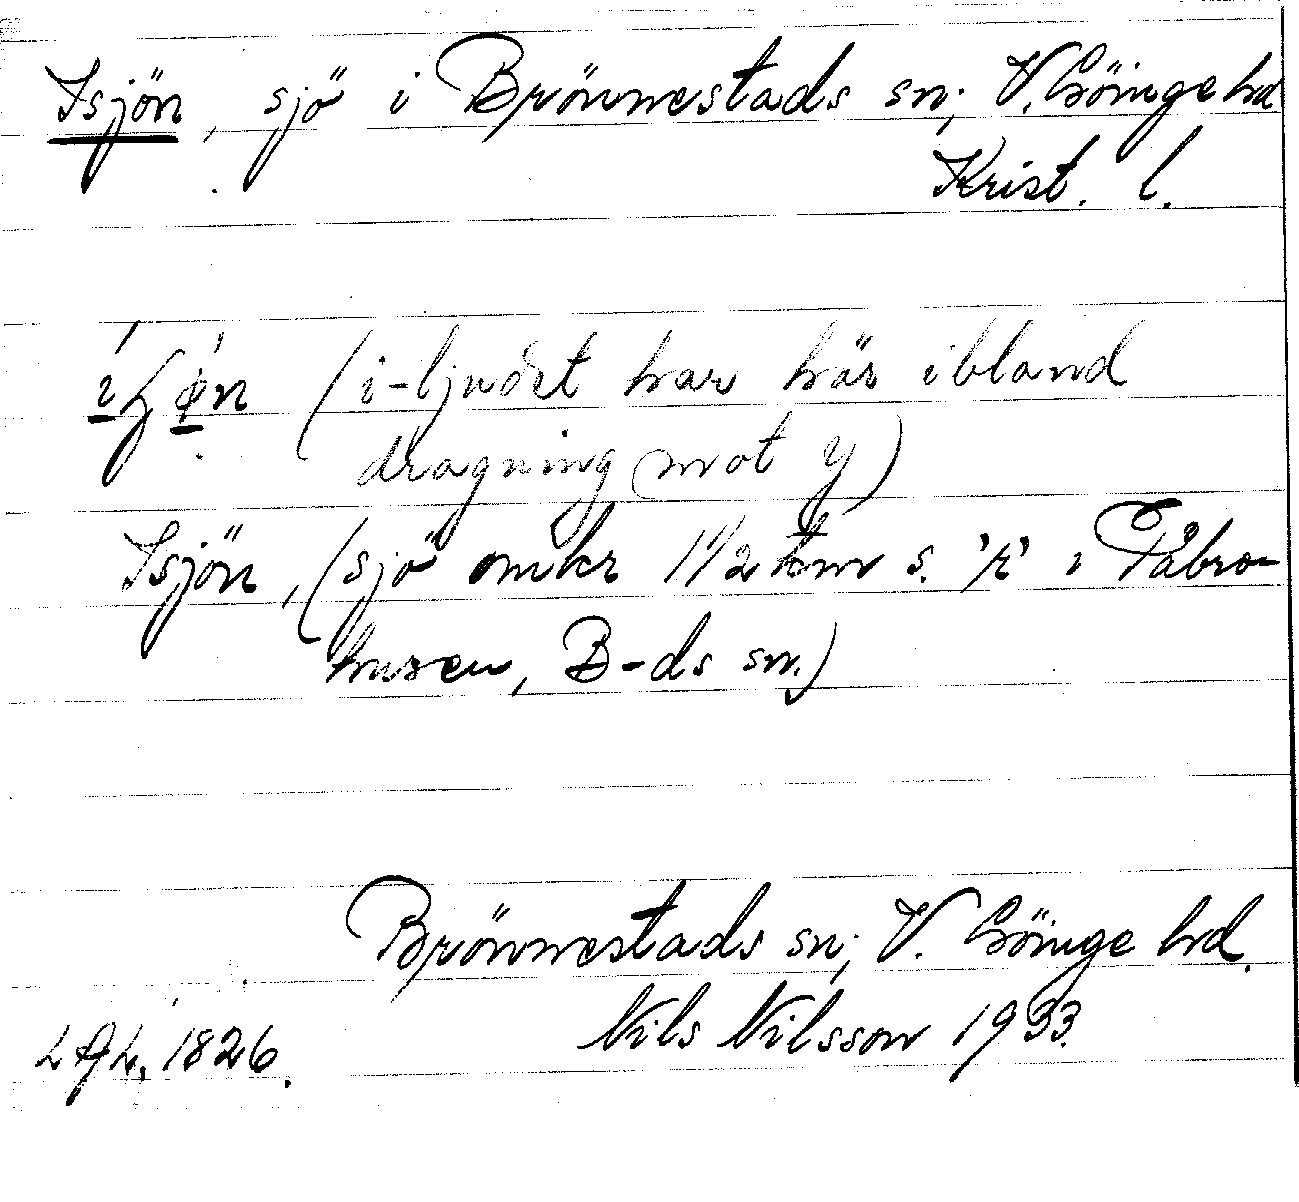 Isjön, sjö i Brönnestads sn; V. Göinge hd
Krist. l.
(i-ljudet har här ibland
dragning mot y)
Isjön, (sjö omkr 1 1/2 km s. "k" i Tåbro-
husen, B-ds sn.)
Brönnestads sn; V. Göinge hd.
Nils Nilsson 1933.
1826.